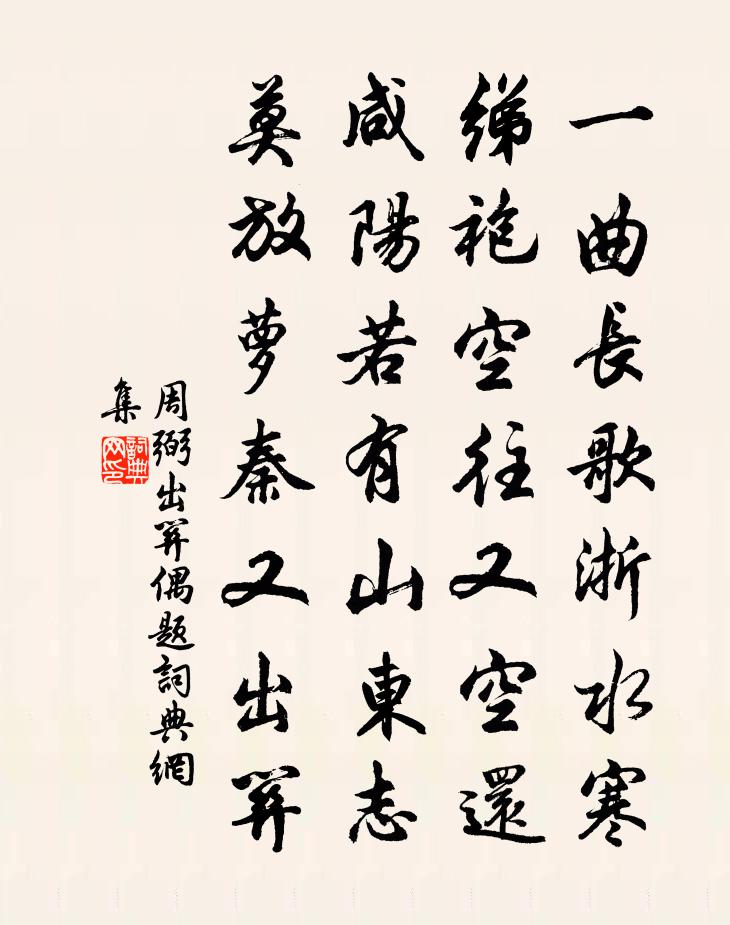 一曲長歌淅水寒
綈袍空往又空還
咸陽若有山東志
莫放夢秦又出關
周弼出關偶題詞典網
集
詞典
网印